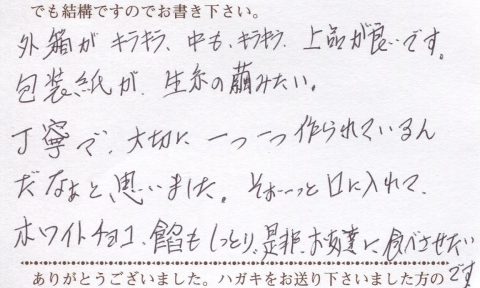 でも結構ですのでお書き下さい。
外箱がキラキラ、中も、キラキラ、上品が良いです。
包装紙が、生糸の繭みたい。
丁寧で、大切に一つ一つ作られているん
だなぁと、思いました。そぉーっと口に入れて、
ホワイトチョコ、餡もしっとり、是非、お友達に食べさせたい
ありがとうございました。ハガキをお送り下さいました方の
です